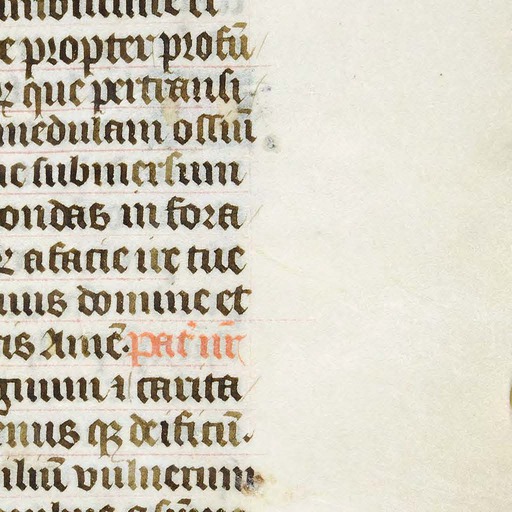 e propter profū
ꝛ que pertransi
medulam ossiū
ne submersum
ondas in fora
ꝛ a facie ire tue
nius domine et
tis Amē. Pat̄ nr̄
gnum ⁊ carita
enus qꝫ deificū.
iliū vulnerum